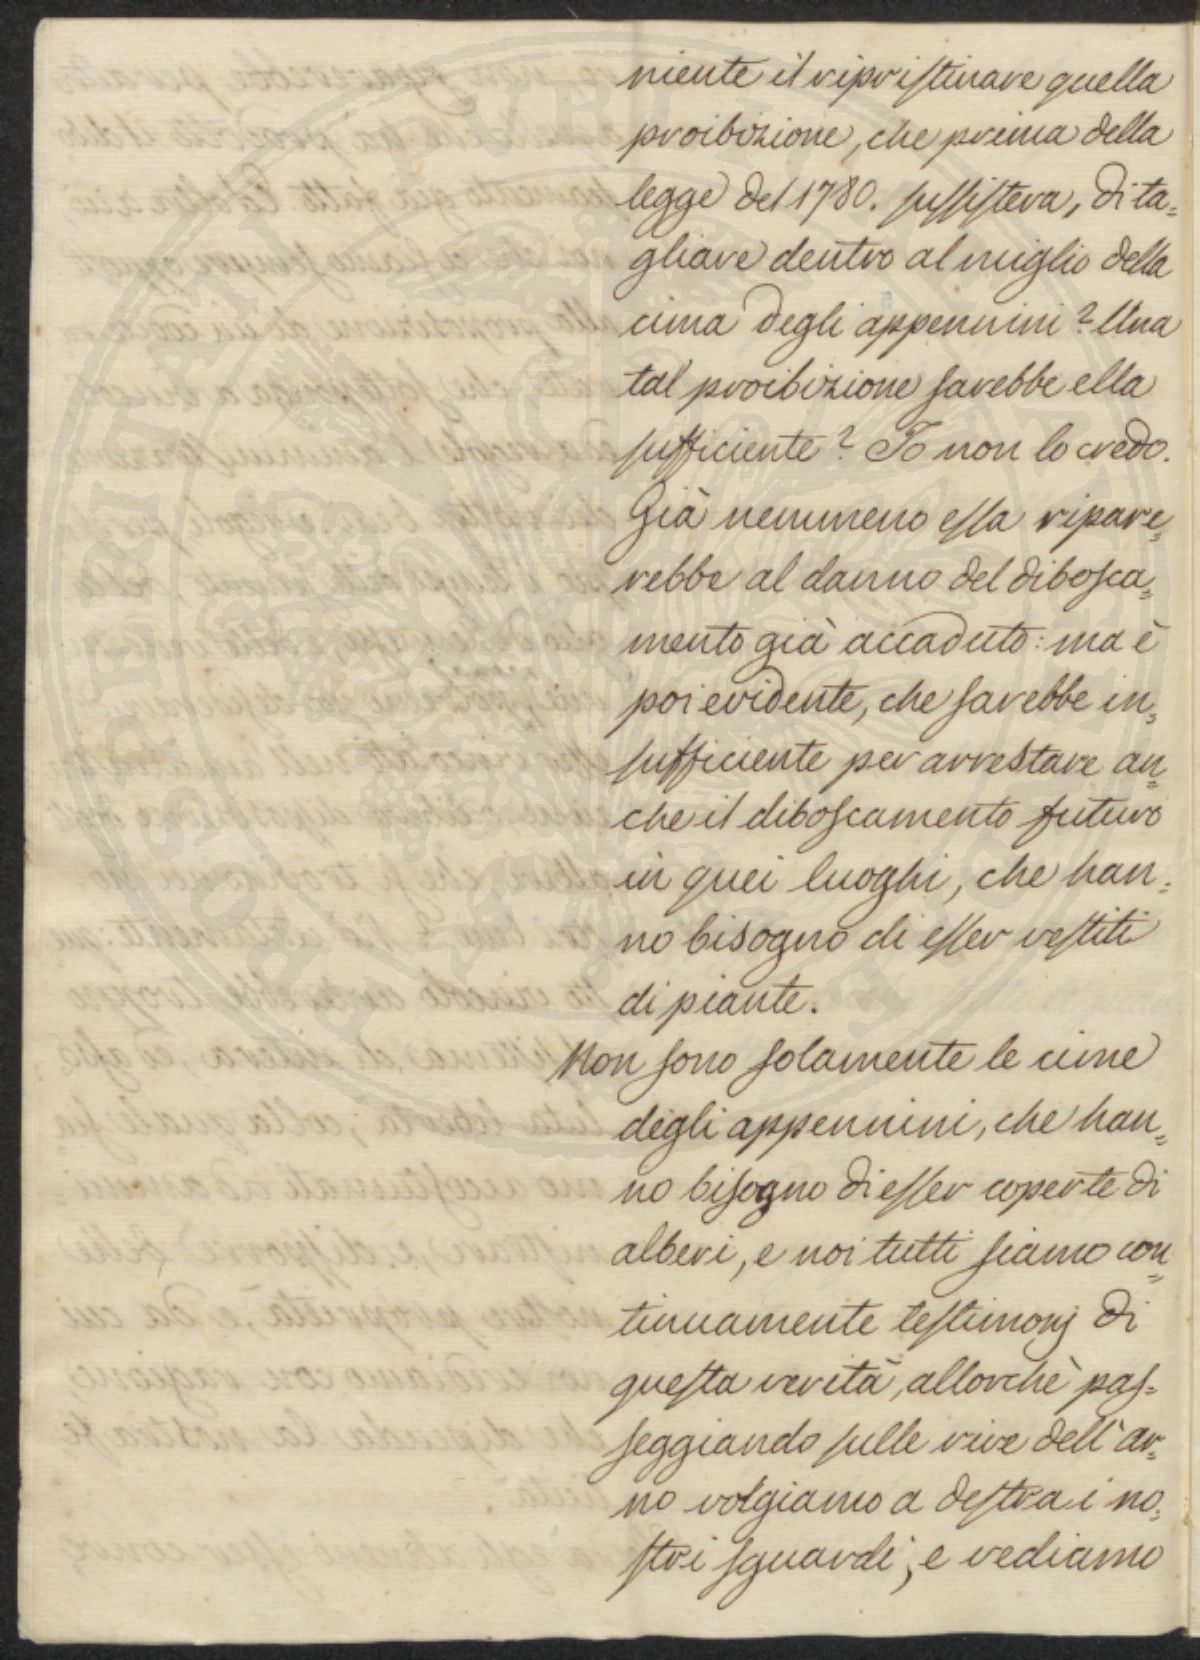 niente il ripristinare quella
proibizione, che prima della
legge del 1780. sussisteva, di ta=
gliare dentro al miglio della
cima degli appennini? Una
tal proibizione sarebbe ella
sufficiente? Io non lo credo.
Già nemmeno essa ripare=
rebbe al danno del dibosca=
mento già accaduto: ma è
poi evidente, che sarebbe in=
sufficiente per arrestare an=
che il diboscamento futuro
in quei luoghi, che han=
no bisogno di esser vestiti
di piante.
Non sono solamente le cime
degli appennini, che han=
no bisogno di esser coperte di
alberi, e noi tutti siamo con=
tinuamente testimonj di
questa verità, allorchè pas=
seggiando sulle rive dell'ar=
no volgiamo a destra i no=
stri sguardi, e vediamo